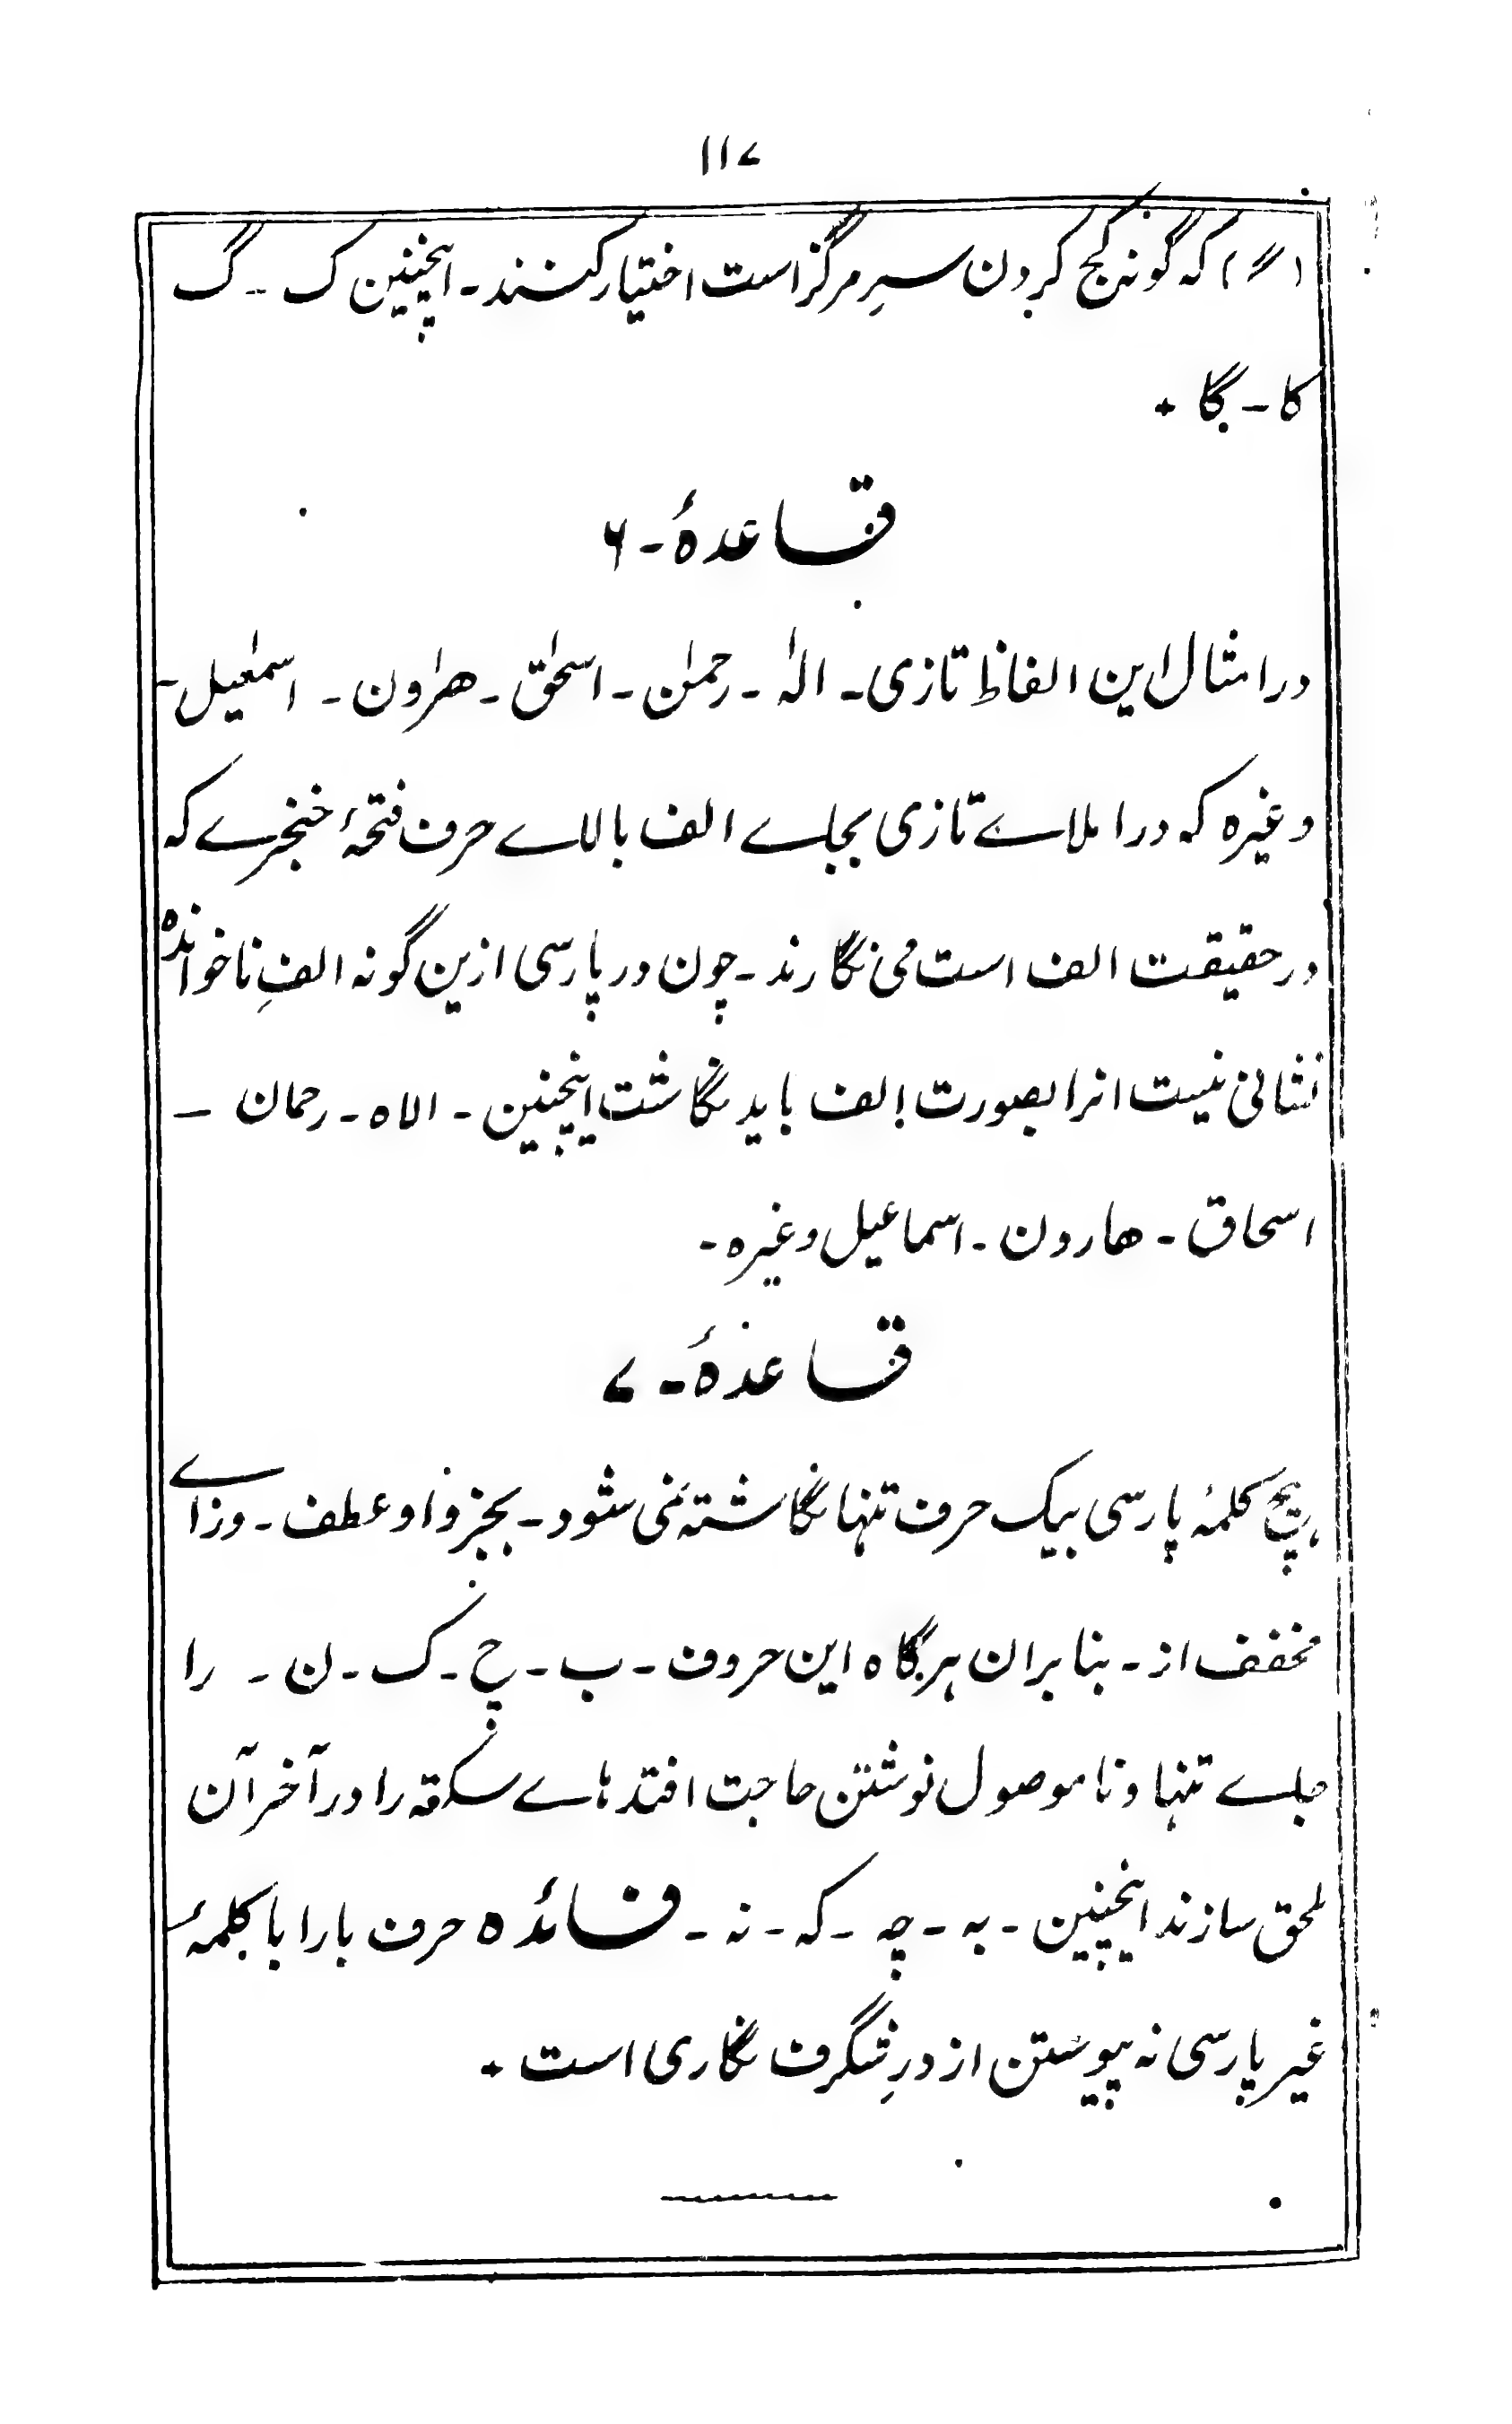 ۱۱۷
(؍) که گونه کج کردن سرِ مرکز است اختیار کنند ـ اینچنین ک ـ گ
کا ـ گا ٭
قاعدهٔ ـ ۶
در امثال این الفاظ تازی ـ الٰه ـ رحمٰن ـ اسحٰق ـ هٰرون ـ اسمٰعیل ـ
وغیره که در املاے تازی بجاے الف بالاے حرف فتحهٔ خنجرے که
در حقیقت الف است می نگارند ـ چون در پارسی ازین گونه الفِ ناخوانده
نشانی نیست انرا بصورت الف باید نگاشت اینچنین ـ الاه ـ رحمان ـ
اسحاق ـ هارون ـ اسماعیل وغیره ـ
قاعدهٔ ـ ۷
هیچ کلمهٔ پارسی بیک حرف تنها نگاشته نمی شود ـ بجز واو عطف ـ وزاے
مخفف از ـ بنابران هرگاه این حروف ـ ب ـ چ ـ ک ـ ن ـ را
جاے تنها و نا موصول نوشتن حاجت افتد هاے سکته را در آخر آن
ملحق سازند اینچنین ـ به ـ چه ـ که ـ نه ـ فائده حرف بارا با کلمهٔ
غیر پارسی نه پیوستن از درِ شگرف نگاری است ٭